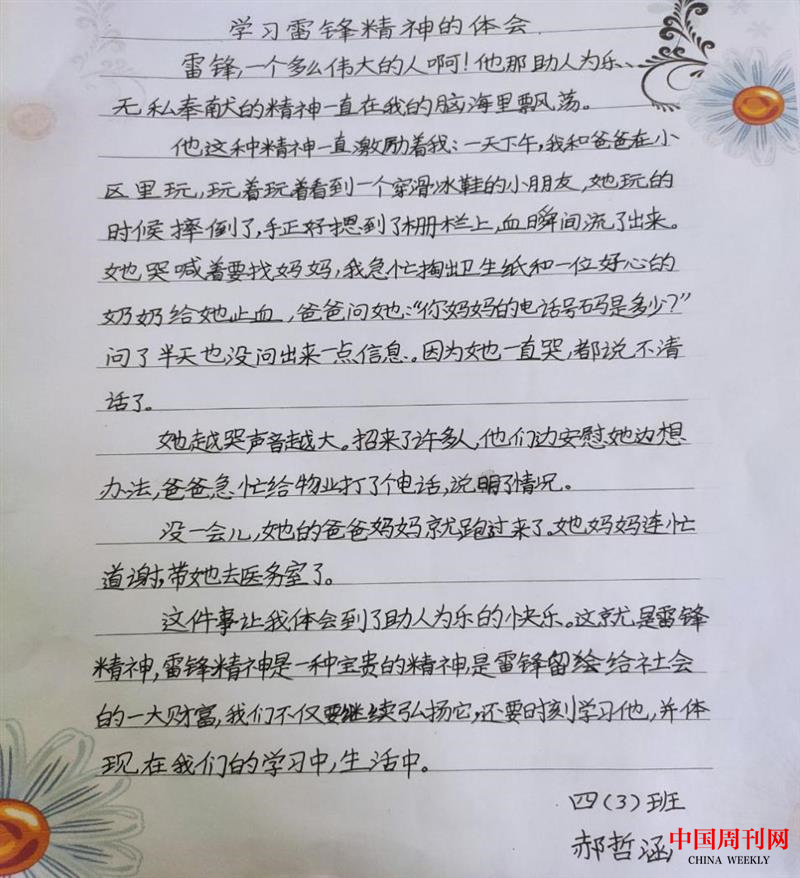 学习雷锋精神的体会
雷锋,一个多么伟大的人啊!他那助人为乐、
无私奉献的精神一直在我的脑海里飘荡。
他这种精神一直激励着我:一天下午,我和爸爸在小
区里玩,玩着玩着看到一个穿滑冰鞋的小朋友,她玩的
时候摔倒了,手正好摁到了栅栏上,血瞬间流了出来。
她哭喊着要找妈妈,我急忙掏出卫生纸和一位好心的
奶奶给她止血,爸爸问她:“你妈妈的电话号码是多少?”
问了半天也没问出来一点信息。因为她一直哭,都说不清
话了。
她越哭声音越大。招来了许多人,他们边安慰她边想
办法,爸爸急忙给物业打了个电话,说明了情况。
没一会儿,她的爸爸妈妈就跑过来了。她妈妈连忙
道谢,带她去医务室了。
这件事让我体会到了助人为乐的快乐。这就是雷锋
精神,雷锋精神是一种宝贵的精神,是雷锋留给给社会
的一大财富,我们不仅要继续弘扬它,还要时刻学习他,并体
现在我们的学习中,生活中。
四(3)班
郝哲涵
中国周刊网
CHINA WEEKLY